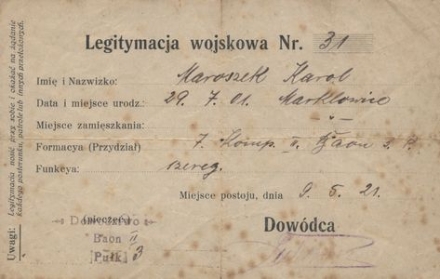 Legitymacja wojskowa Nr. 31
Imię i Nazwizko: Maroszek Karol
Data i miejsce urodz.: 29. 7. 01. Marklowice
Miejsce zamięszkania: "
Formacya (Przydział) 7. Komp. II. Baon 3. P.
Funkcya: szereg.
Miejsce postoju, dnia 9. 6. 21.
(pieczęć)
Dowództwo
Baon II
Pułk 3
Dowódca
Uwagi: Legitymację nosić przy sobie i okazać na żądanie
każdego posterunku, patrole lub innych przełożonych.